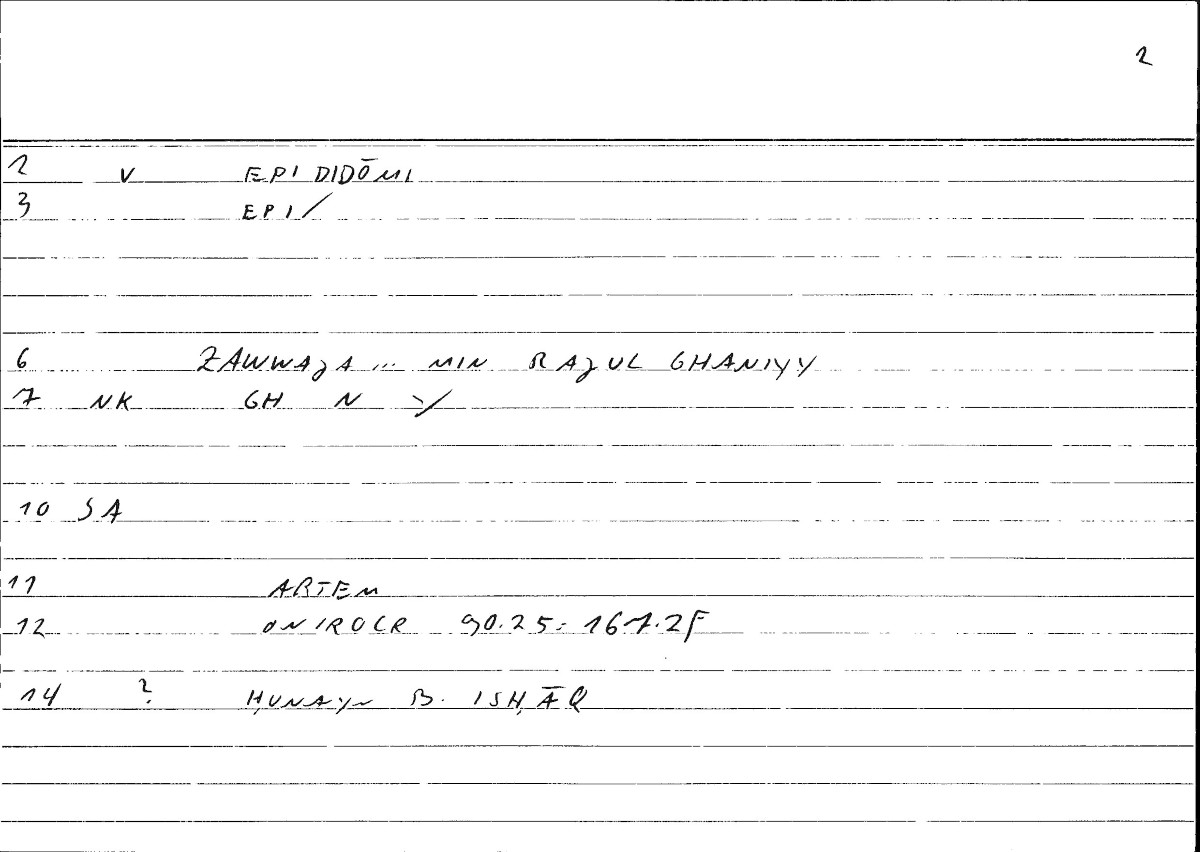 2
2 V EPIDIDŌMI
3 EPI/
6 ZAWWAJA ... MIN RAJUL GHANIYY
7 NK GH N Y/
10 SA
11 ARTEM
12 ONIROCR 90.25 = 167.2F
14 ? ḤUNAYN B. ISḤĀQ